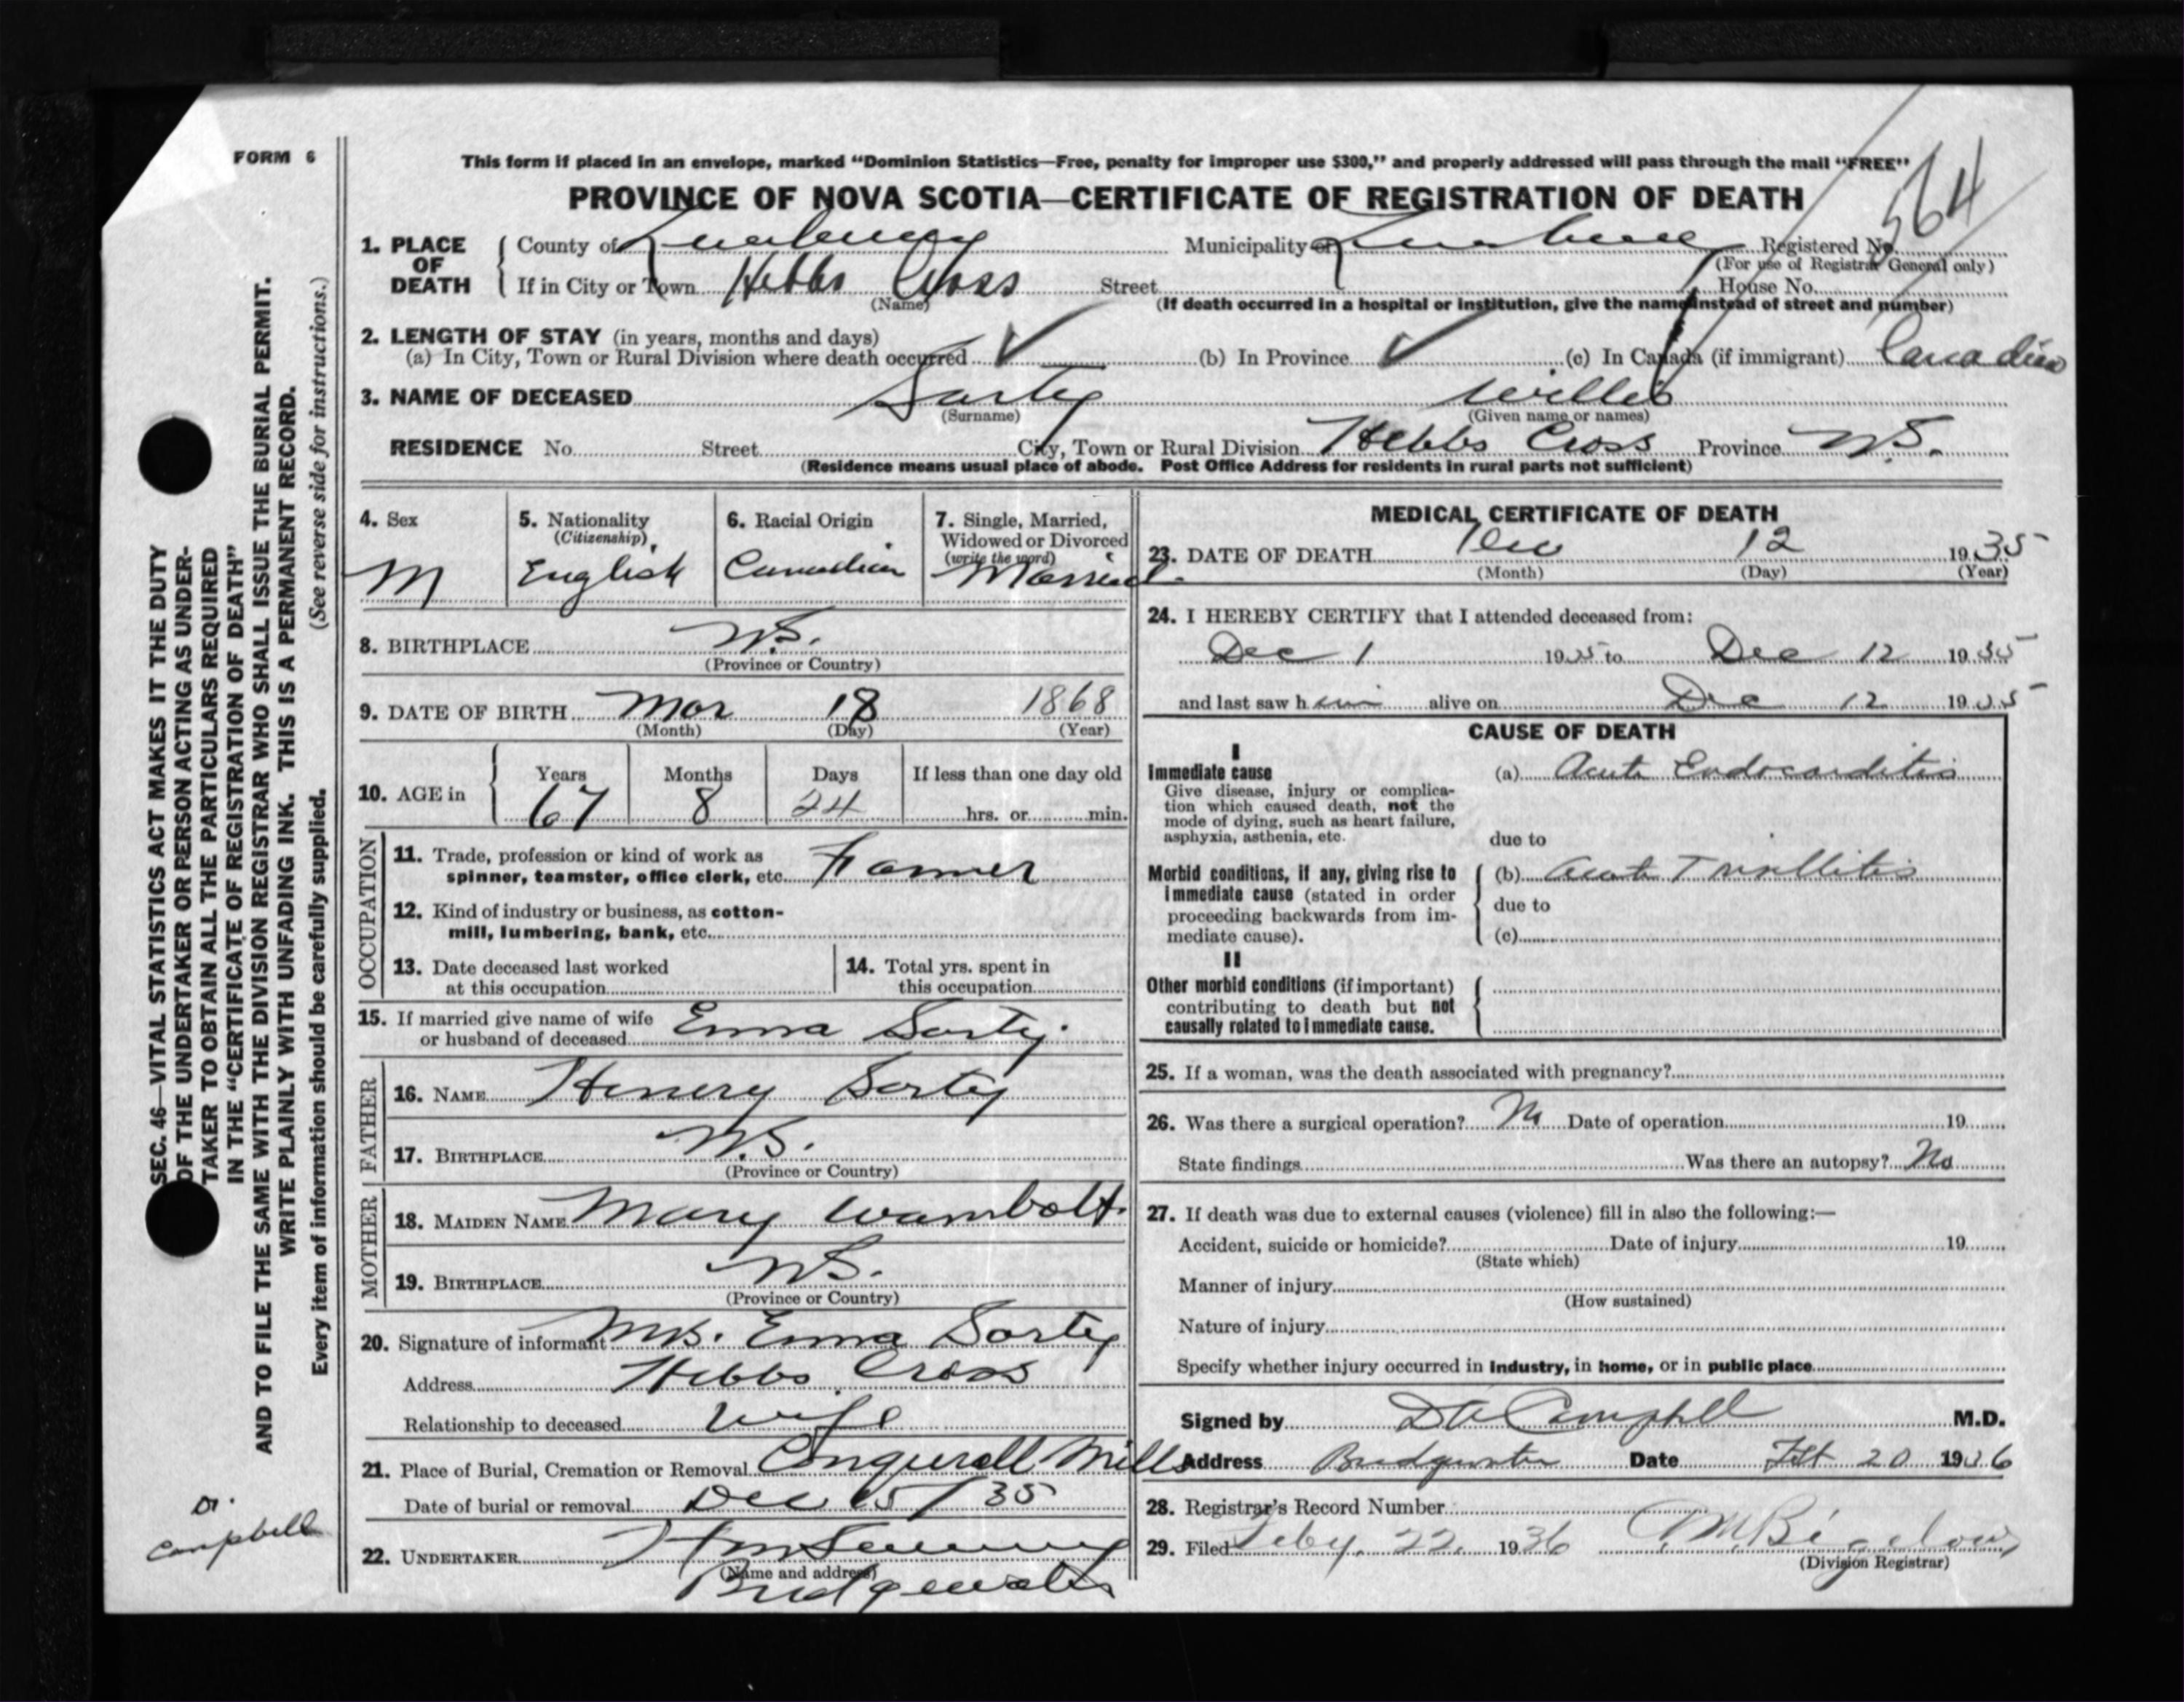 FORM 6
This form if placed in an envelope, marked “Dominion Statistics—Free, penalty for improper use $300,” and properly addressed will pass through the mail “FREE”
PROVINCE OF NOVA SCOTIA—CERTIFICATE OF REGISTRATION OF DEATH
564
1. PLACE OF DEATH County of Lunenburg Municipality of Lunenburg Registered No.
(For use of Registrar General only)
If in City or Town Hebbs Cross Street House No.
(Name) (If death occurred in a hospital or institution, give the name instead of street and number)
2. LENGTH OF STAY (in years, months and days)
(a) In City, Town or Rural Division where death occurred ✓ (b) In Province ✓ (c) In Canada (if immigrant) Canadian
3. NAME OF DECEASED Sarty Willis
(Surname) (Given name or names)
RESIDENCE No. Street City, Town or Rural Division Hebbs Cross Province N.S.
(Residence means usual place of abode. Post Office Address for residents in rural parts not sufficient)
4. Sex M
5. Nationality (Citizenship) English
6. Racial Origin Canadian
7. Single, Married, Widowed or Divorced (write the word) Married.
8. BIRTHPLACE N.S.
(Province or Country)
9. DATE OF BIRTH Mar 18 1868
(Month) (Day) (Year)
10. AGE in Years Months Days If less than one day old
67 8 24 hrs. or min.
OCCUPATION
11. Trade, profession or kind of work as
spinner, teamster, office clerk, etc. Farmer
12. Kind of industry or business, as cotton-
mill, lumbering, bank, etc.
13. Date deceased last worked
at this occupation
14. Total yrs. spent in
this occupation
15. If married give name of wife
or husband of deceased Emma Sarty.
FATHER
16. NAME Henery Sarty
17. BIRTHPLACE N.S.
(Province or Country)
MOTHER
18. MAIDEN NAME Mary Wambolt.
19. BIRTHPLACE N.S.
(Province or Country)
20. Signature of informant Mrs. Emma Sarty
Address Hebbs Cross
Relationship to deceased wife
21. Place of Burial, Cremation or Removal Conquerall Mills
Date of burial or removal Dec 15/35
22. UNDERTAKER
(Name and address)
Bridgewater
MEDICAL CERTIFICATE OF DEATH
23. DATE OF DEATH Dec 12 1935
(Month) (Day) (Year)
24. I HEREBY CERTIFY that I attended deceased from:
Dec 1 1935 to Dec 12 1935
and last saw him alive on Dec 12 1935
CAUSE OF DEATH
I
Immediate cause (a) Acute Endocarditis
Give disease, injury or complica-
tion which caused death, not the
mode of dying, such as heart failure,
asphyxia, asthenia, etc. due to
Morbid conditions, if any, giving rise to (b) Acute Tonsillitis
immediate cause (stated in order due to
proceeding backwards from im-
mediate cause). (c)
II
Other morbid conditions (if important)
contributing to death but not
causally related to immediate cause.
25. If a woman, was the death associated with pregnancy?
26. Was there a surgical operation? No Date of operation 19
State findings Was there an autopsy? No
27. If death was due to external causes (violence) fill in also the following:—
Accident, suicide or homicide? Date of injury 19
(State which)
Manner of injury
(How sustained)
Nature of injury
Specify whether injury occurred in industry, in home, or in public place
Signed by D A Campbell M.D.
Address Bridgewater Date Feb 20 1936
28. Registrar's Record Number
29. Filed Feby. 22. 1936 Bigelow
(Division Registrar)
SEC. 46—VITAL STATISTICS ACT MAKES IT THE DUTY
OF THE UNDERTAKER OR PERSON ACTING AS UNDER-
TAKER TO OBTAIN ALL THE PARTICULARS REQUIRED
IN THE “CERTIFICATE OF REGISTRATION OF DEATH”
AND TO FILE THE SAME WITH THE DIVISION REGISTRAR WHO SHALL ISSUE THE BURIAL PERMIT.
WRITE PLAINLY WITH UNFADING INK. THIS IS A PERMANENT RECORD.
Every item of information should be carefully supplied. (See reverse side for instructions.)
Dr.
Campbell